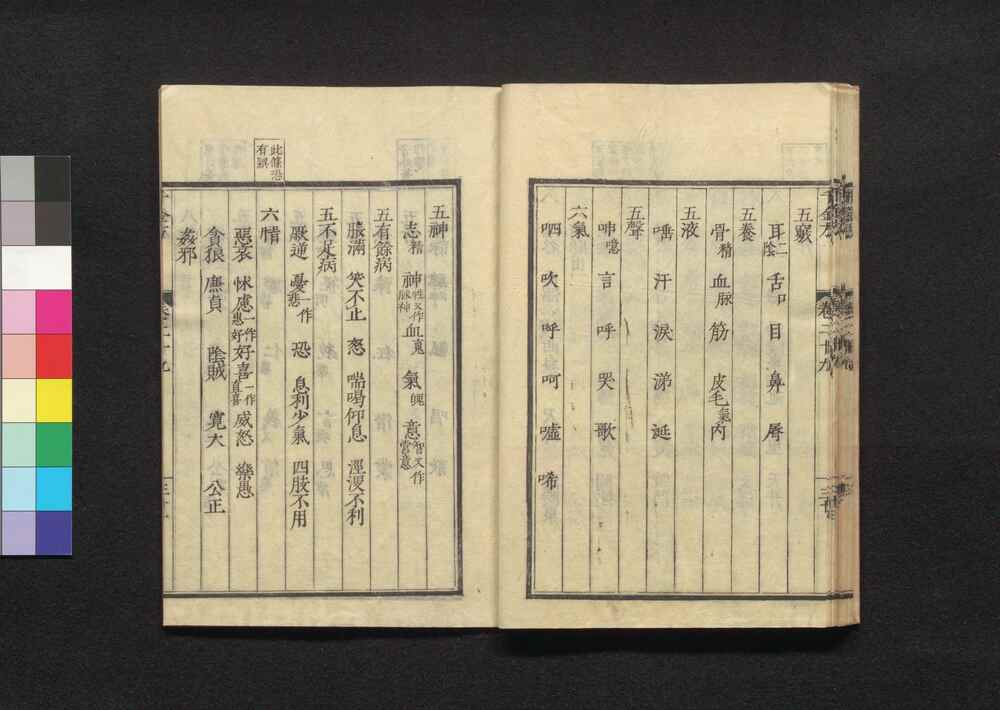 五竅
耳二陰 舌口 目 鼻 脣
五養
骨精 血脉 筋 皮毛氣 肉
五液
唾 汗 淚 涕 涎
五聲
呻噫 言 呼 哭 歌
六氣
呬 吹 呼 呵 噓 唏
五神
志精 神性又作脉神 血䰟 氣魄 意智又作營意
五有餘病
脹滿 笑不止 怒 喘喝仰息 涇溲不利
五不足病
厥逆 憂一作悲 恐 息利少氣 四肢不用
此條恐有誤
六情
惡哀 怵慮一作惠好 好喜一作直喜 威怒 樂愚
貪狼 廉貞 陰賊 寛大 公正
姦邪
卷二十九